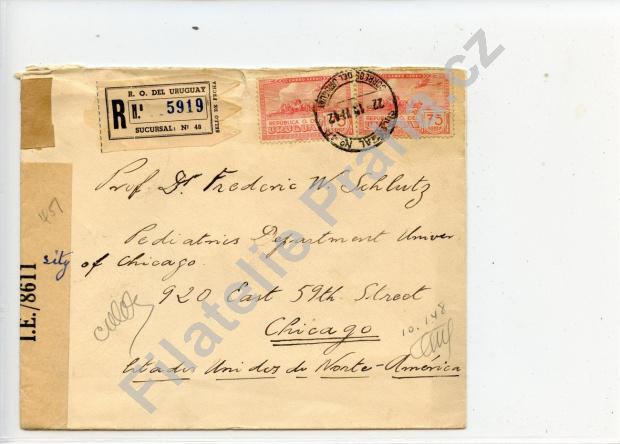 R. O. DEL URUGUAY
R N.º 5919
SUCURSAL: Nº 48
SELLO DE FECHA
CORREO AEREO
REPÚBLICA O. DEL
URUGUAY
75
CORREOS DEL URUGUAY
22
Prof Dr. Frederic W Schlutz
Pediatrics Department Univer
sity of Chicago.
920 East 59th Street
Chicago
Estados Unidos de Norte-América
I.E./8611
451
10.1.48
Filatelie Praha.cz